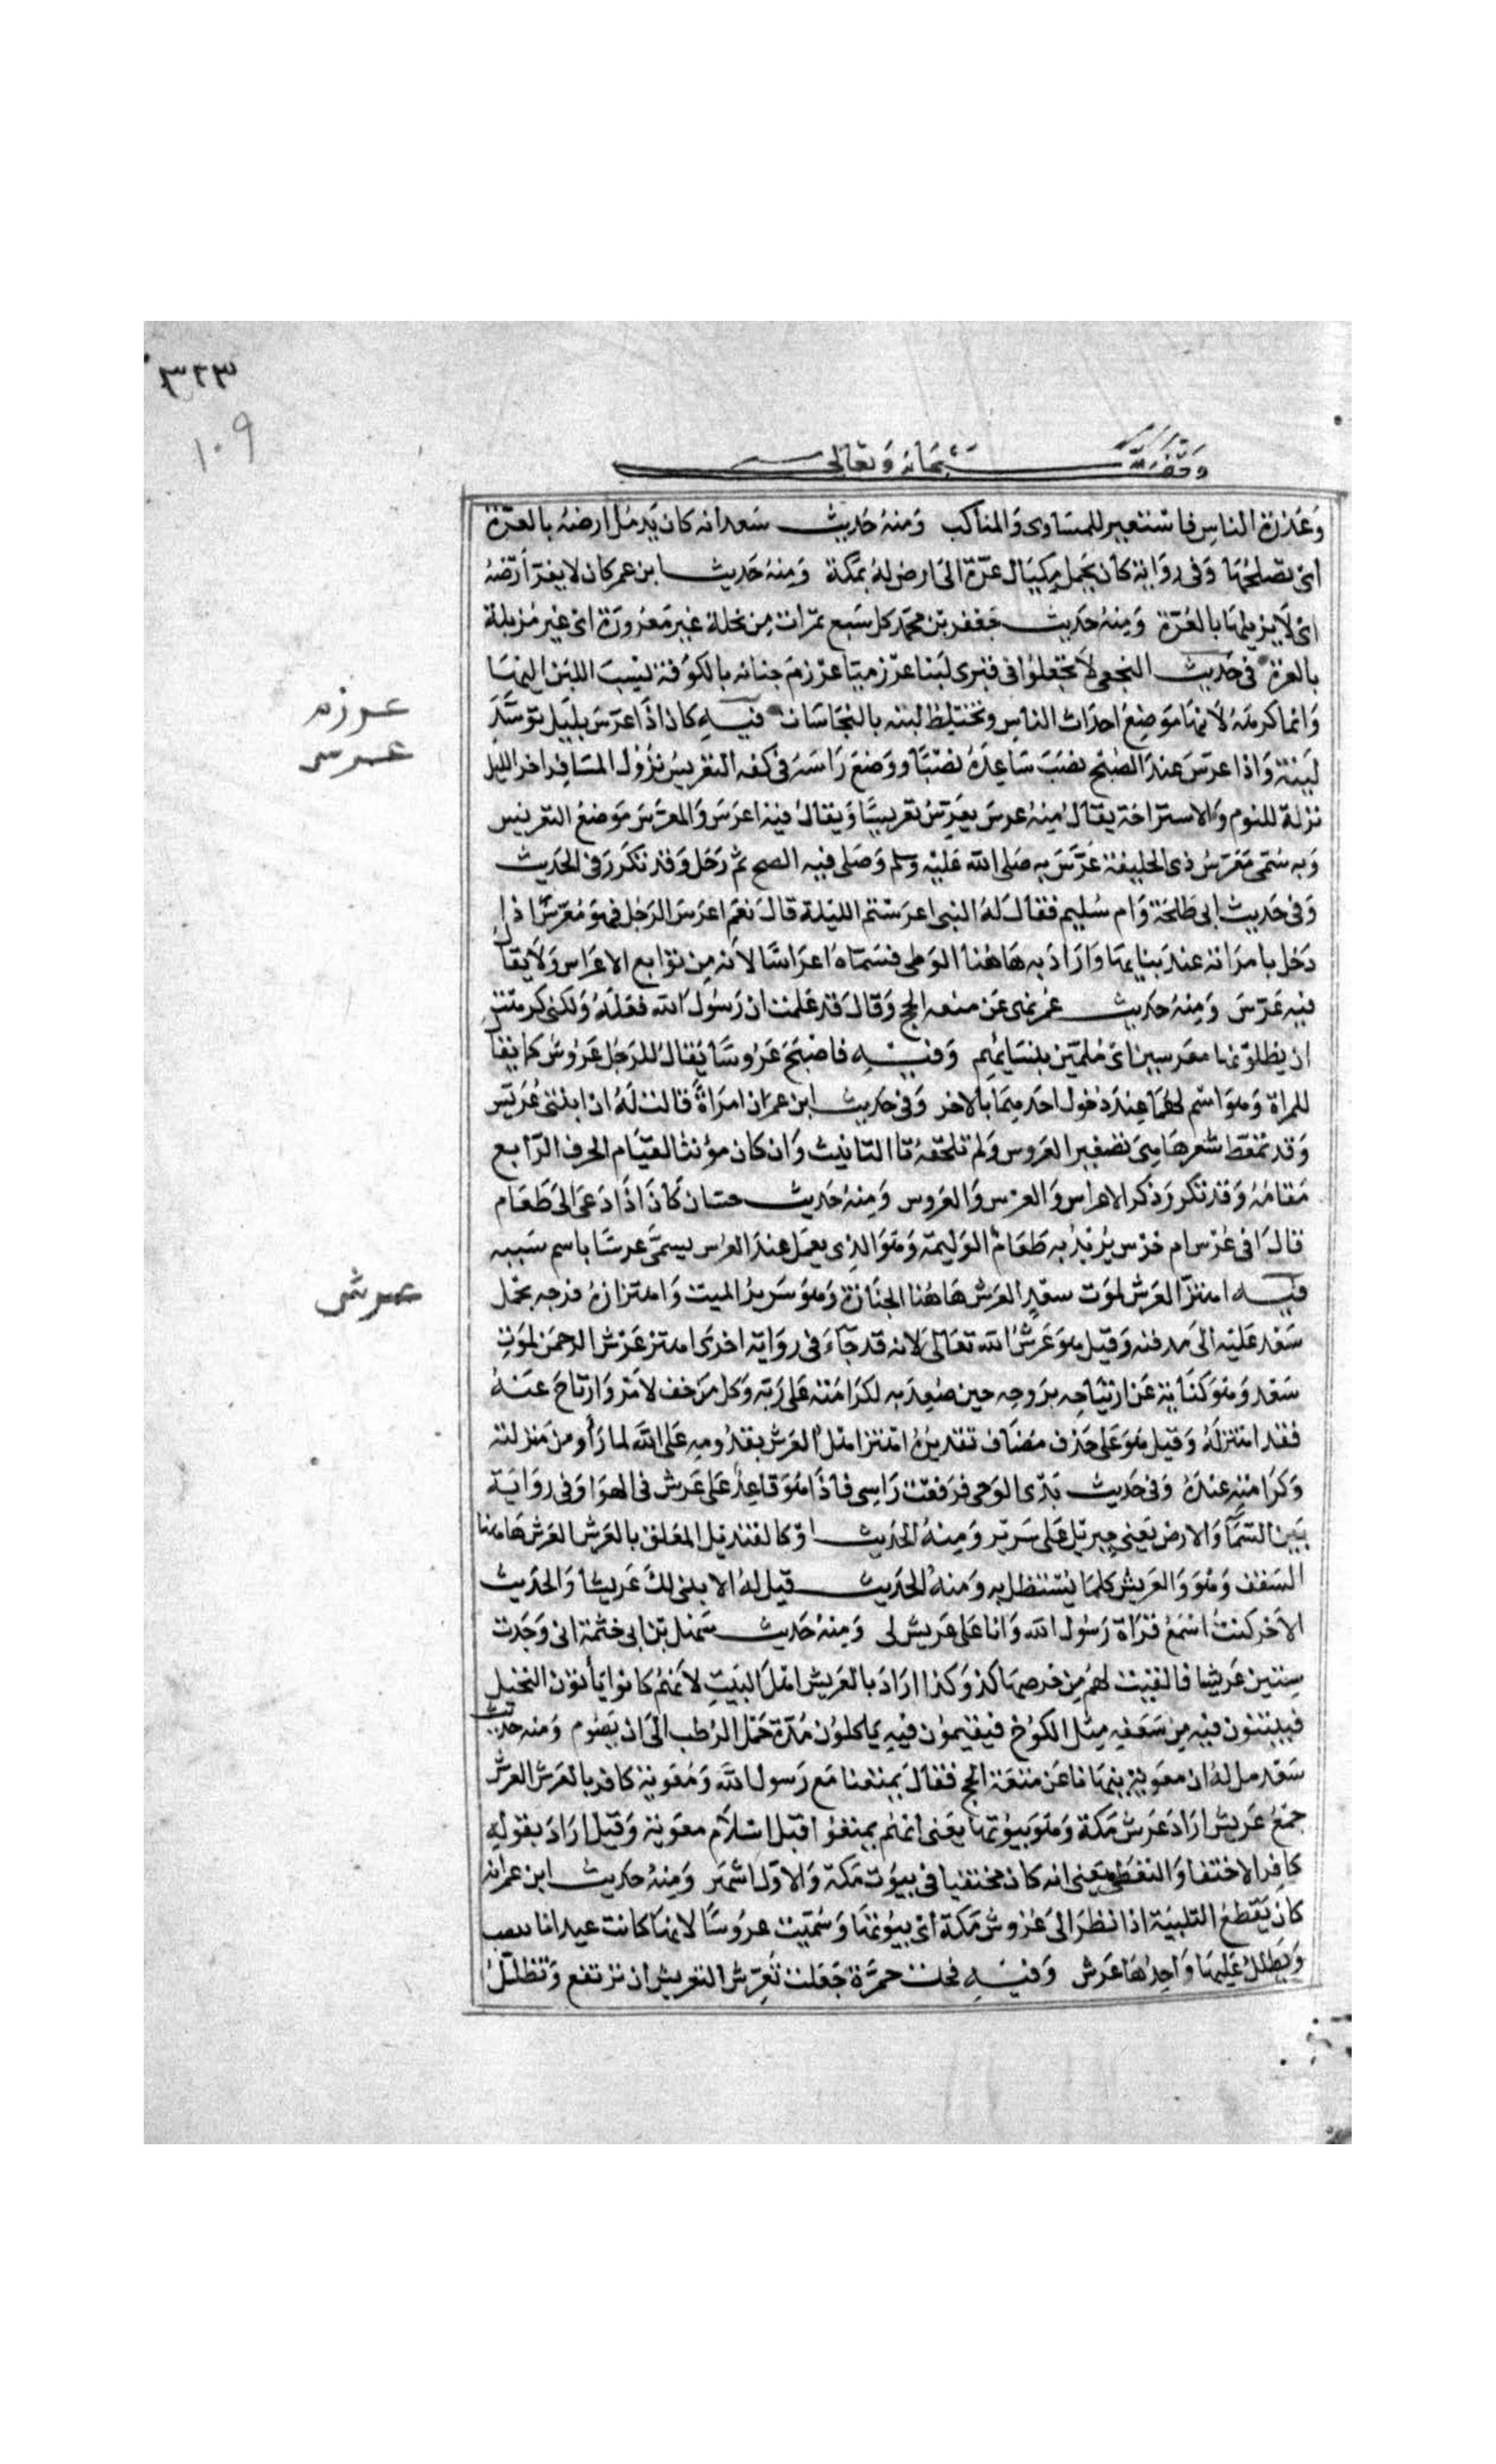 ٣٢٣
١٠٩
وقف لله سبحانه وتعالى
وعذرة الناس فاستعير للمساوى والمناكب ومنه حديث سعد انه كان يدمل ارضه بالعرة
اى يصلحها وفى رواية كان يحمل مكيال عرة الى ارض له بمكة ومنه حديث ابن عمر كان لا يعر ارضه
اى لا يزبلها بالعرة ومنه حديث جعفر بن محمد كل سبع تمرات من نخلة غير معرورة اى غير مزبلة
بالعرة فى حديث النجعى لا تجعلوا فى قبرى لبنا عرزميا عرزم جبانه بالكوفة نسب اللبن اليها
وانما كرهه لانها موضع احداث الناس ويختلط لبنه بالنجاسات فيه كان اذا عرس بليل توسد
عرزم
عرس
لبنة واذا عرس عند الصبح نصب ساعده نصبا ووضع راسه فى كفه التعريس نزول المسافر اخر الليل
نزلة للنوم والاستراحة يقال منه عرس يعرس تعريسا ويقال فيه اعرس والمعرس موضع التعريس
وبه سمى معرس ذى الحليفة عرس به صلى الله عليه وسلم وصلى فيه الصبح ثم رحل وقد تكرر فى الحديث
وفى حديث ابى طلحة وام سليم فقال له النبى اعرستم الليلة قال نعم اعرس الرجل فهو معرس اذا
دخل بامراته عند بنايها واراد به هاهنا الوطى فسماه اعراسا لانه من توابع الاعراس ولا يقال
فيه عرس ومنه حديث عمر نهى عن متعه الحج وقال قد علمت ان رسول الله فعله ولكنى كرهت
ان يظلوا بها معرسين اى ملمين بنسايهم وفيه فاصبح عروسا يقال للرجل عروس كما يقال
للمراة وهو اسم لهما عند دخول احدهما بالاخر وفى حديث ابن عمر ان امراة قالت له ان ابنتى عريس
وقد تمعط شعرها هى تصغير العروس ولم تلحقه تا التانيث وان كان مؤنثا لقيام الحرف الرابع
مقامه وقد تكرر ذكر الاعراس والعرس والعروس ومنه حديث حسان كان اذا دعى الى طعام
قال افى عرس ام خرس يريد به طعام الوليمة وهو الذى يعمل عند العرس يسمى عرسا باسم سببه
فيه اهتز العرش لموت سعد العرش هاهنا الجنازة وهو سرير الميت واهتزازه فرحه بحمل
عرش
سعد عليه الى مدفنه وقيل هو عرش الله تعالى لانه قد جآء فى رواية اخرى اهتز عرش الرحمن لموت
سعد وهو كناية عن ارتياحه بروحه حين صعد به لكرامته على ربه وكل من خف لامر وارتاح عنه
فقد اهتز له وقيل هو على حذف مضاف تقديره اهتز اهل العرش بقدومه على الله لما رأو من منزلته
وكرامته عنده وفى حديث بدى الوحى فرفعت راسى فاذا هو قاعد على عرش فى الهوا وفى رواية
بين السمآ والارض يعنى جبريل على سرير ومنه الحديث او كالقنديل المعلق بالعرش العرش هاهنا
السقف وهو والعريش كلما يستظل به ومنه الحديث قيل له الا نبنى لك عريشا والحديث
الاخر كنت اسمع قراة رسول الله وانا على عريش لى ومنه حديث سهل بن ابى خثمة انى وجدت
ستين عريشا فالفيت لهم من خرصها كذ وكذا اراد بالعريش اهل البيت لانهم كانوا يأتون النخيل
فيبتنون فيه من سعفه مثل الكوخ فيقيمون فيه ياكلون مدة حمل الرطب الى ان يصوم ومنه حديث
سعد قيل له ان معوية ينهانا عن متعة الحج فقال تمتعنا مع رسول الله ومعوية كافر بالعرش العرش
جمع عريش اراد عرش مكة وهو بيوتها يعنى انهم تمتعوا قبل اسلام معوية وقيل اراد بقوله
كافر الاختفا والتغطى يعنى انه كان مختفيا فى بيوت مكة والاول اشهر ومنه حديث ابن عمر انه
كان يقطع التلبية اذا نظر الى عروش مكة اى بيوتها وسميت عروشا لانها كانت عيدانا تنصب
ويظلل عليها واحدها عرش وفيه فجات حمرة جعلت تعرش التعريش ان ترتفع وتظلل